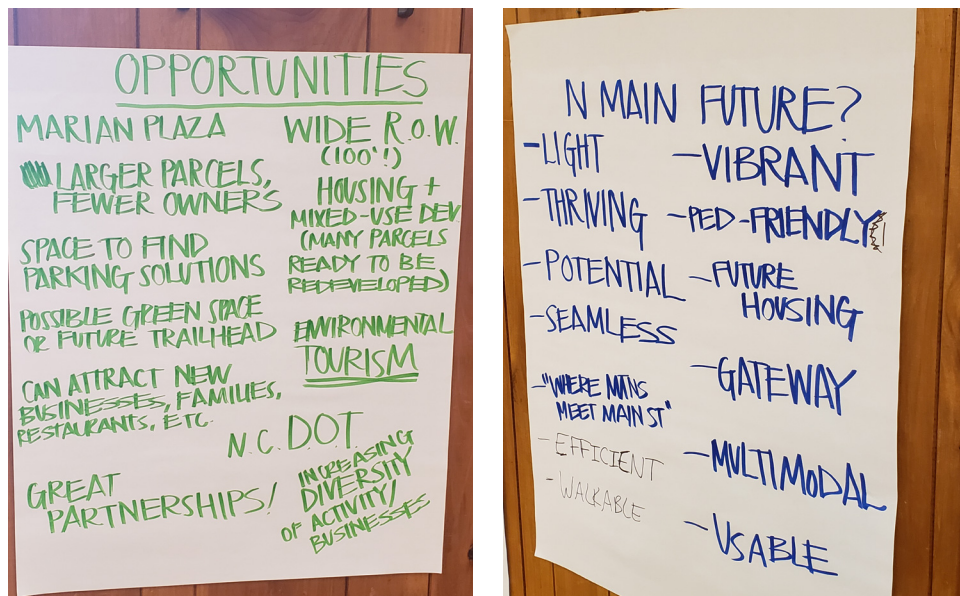 OPPORTUNITIES
MARIAN PLAZA
LARGER PARCELS,
FEWER OWNERS
SPACE TO FIND
PARKING SOLUTIONS
POSSIBLE GREEN SPACE
OR FUTURE TRAILHEAD
CAN ATTRACT NEW
BUSINESSES, FAMILIES,
RESTAURANTS, ETC.
GREAT
PARTNERSHIPS!
WIDE R.O.W.
(100'!)
HOUSING +
MIXED-USE DEV
(MANY PARCELS
READY TO BE
REDEVELOPED)
ENVIRONMENTAL
TOURISM
N.C. D.O.T.
INCREASING
DIVERSITY
OF ACTIVITY/
BUSINESSES
N MAIN FUTURE?
-LIGHT
-THRIVING
-POTENTIAL
-SEAMLESS
-"WHERE MTNS
MEET MAIN ST"
-EFFICIENT
-WALKABLE
-VIBRANT
-PED-FRIENDLY
-FUTURE
HOUSING
-GATEWAY
-MULTIMODAL
-USABLE